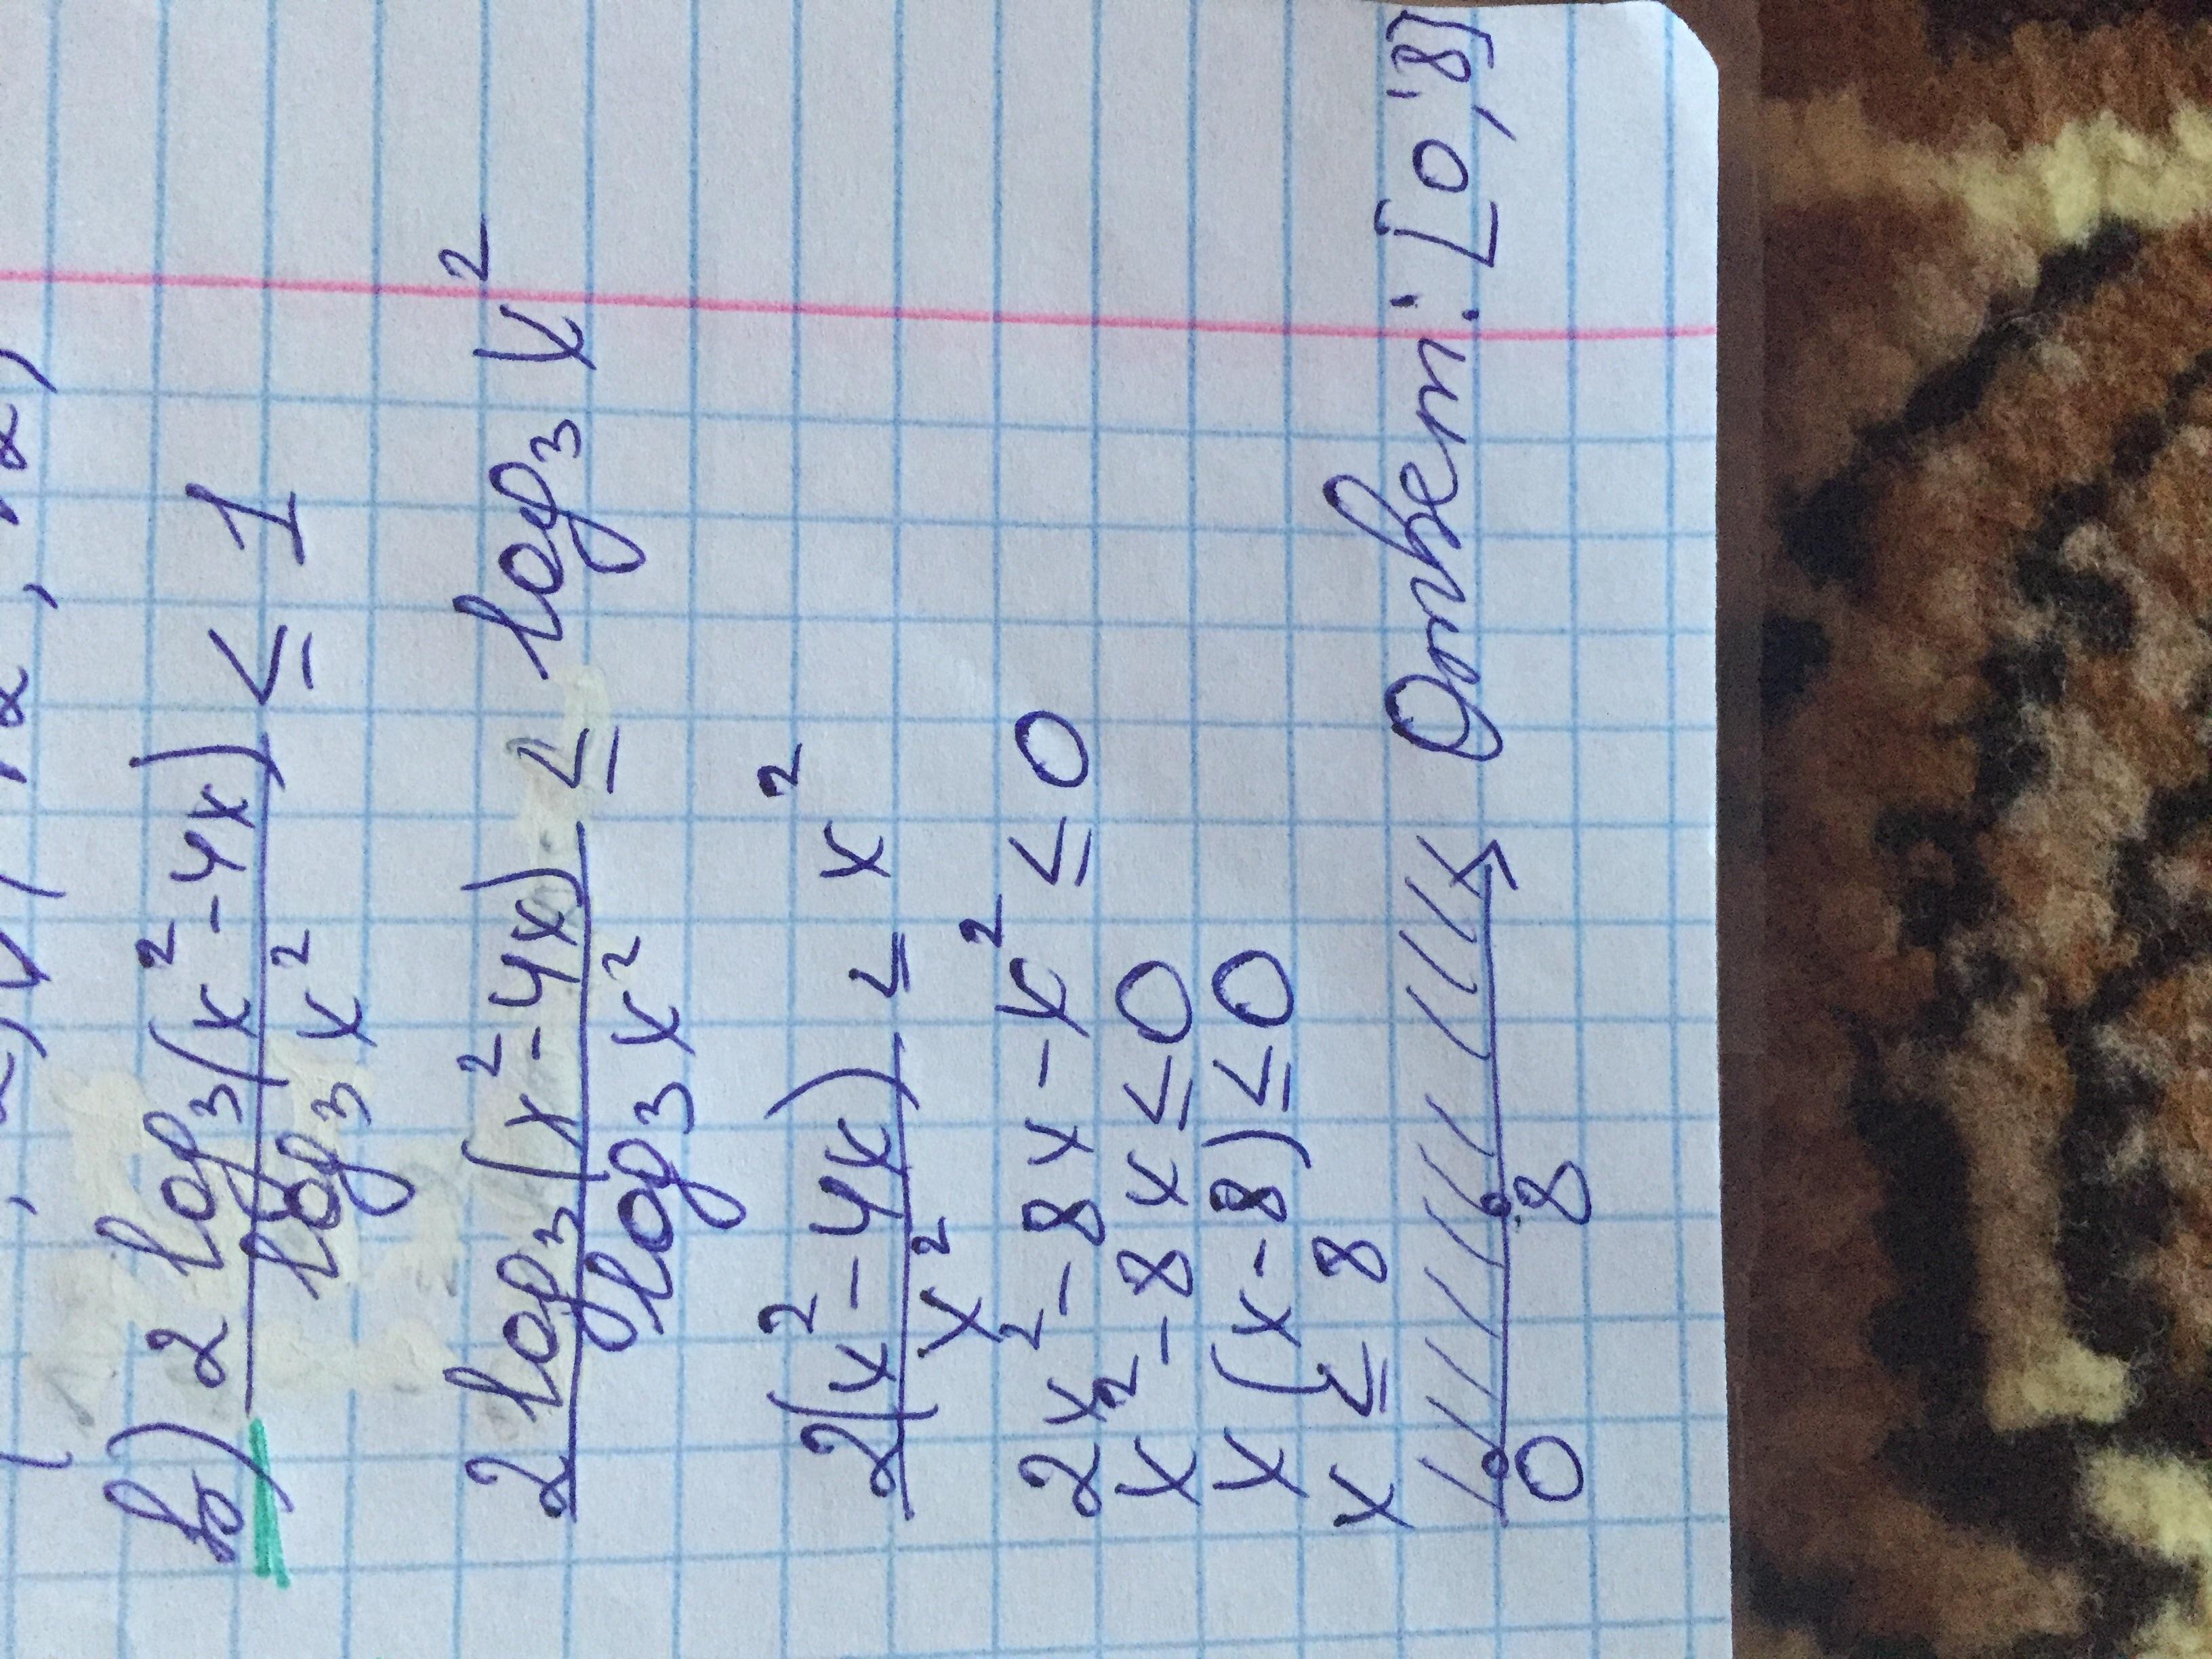 в) 2 log₃(x² - 4x) / log₃ x² ≤ 1
2 log₃(x² - 4x) / log₃ x² ≤ log₃ x²
2(x² - 4x) / x² ≤ x²
2x² - 8x - x² ≤ 0
x² - 8x ≤ 0
x(x - 8) ≤ 0
x ≤ 8
0 8 Ответ: [0; 8]